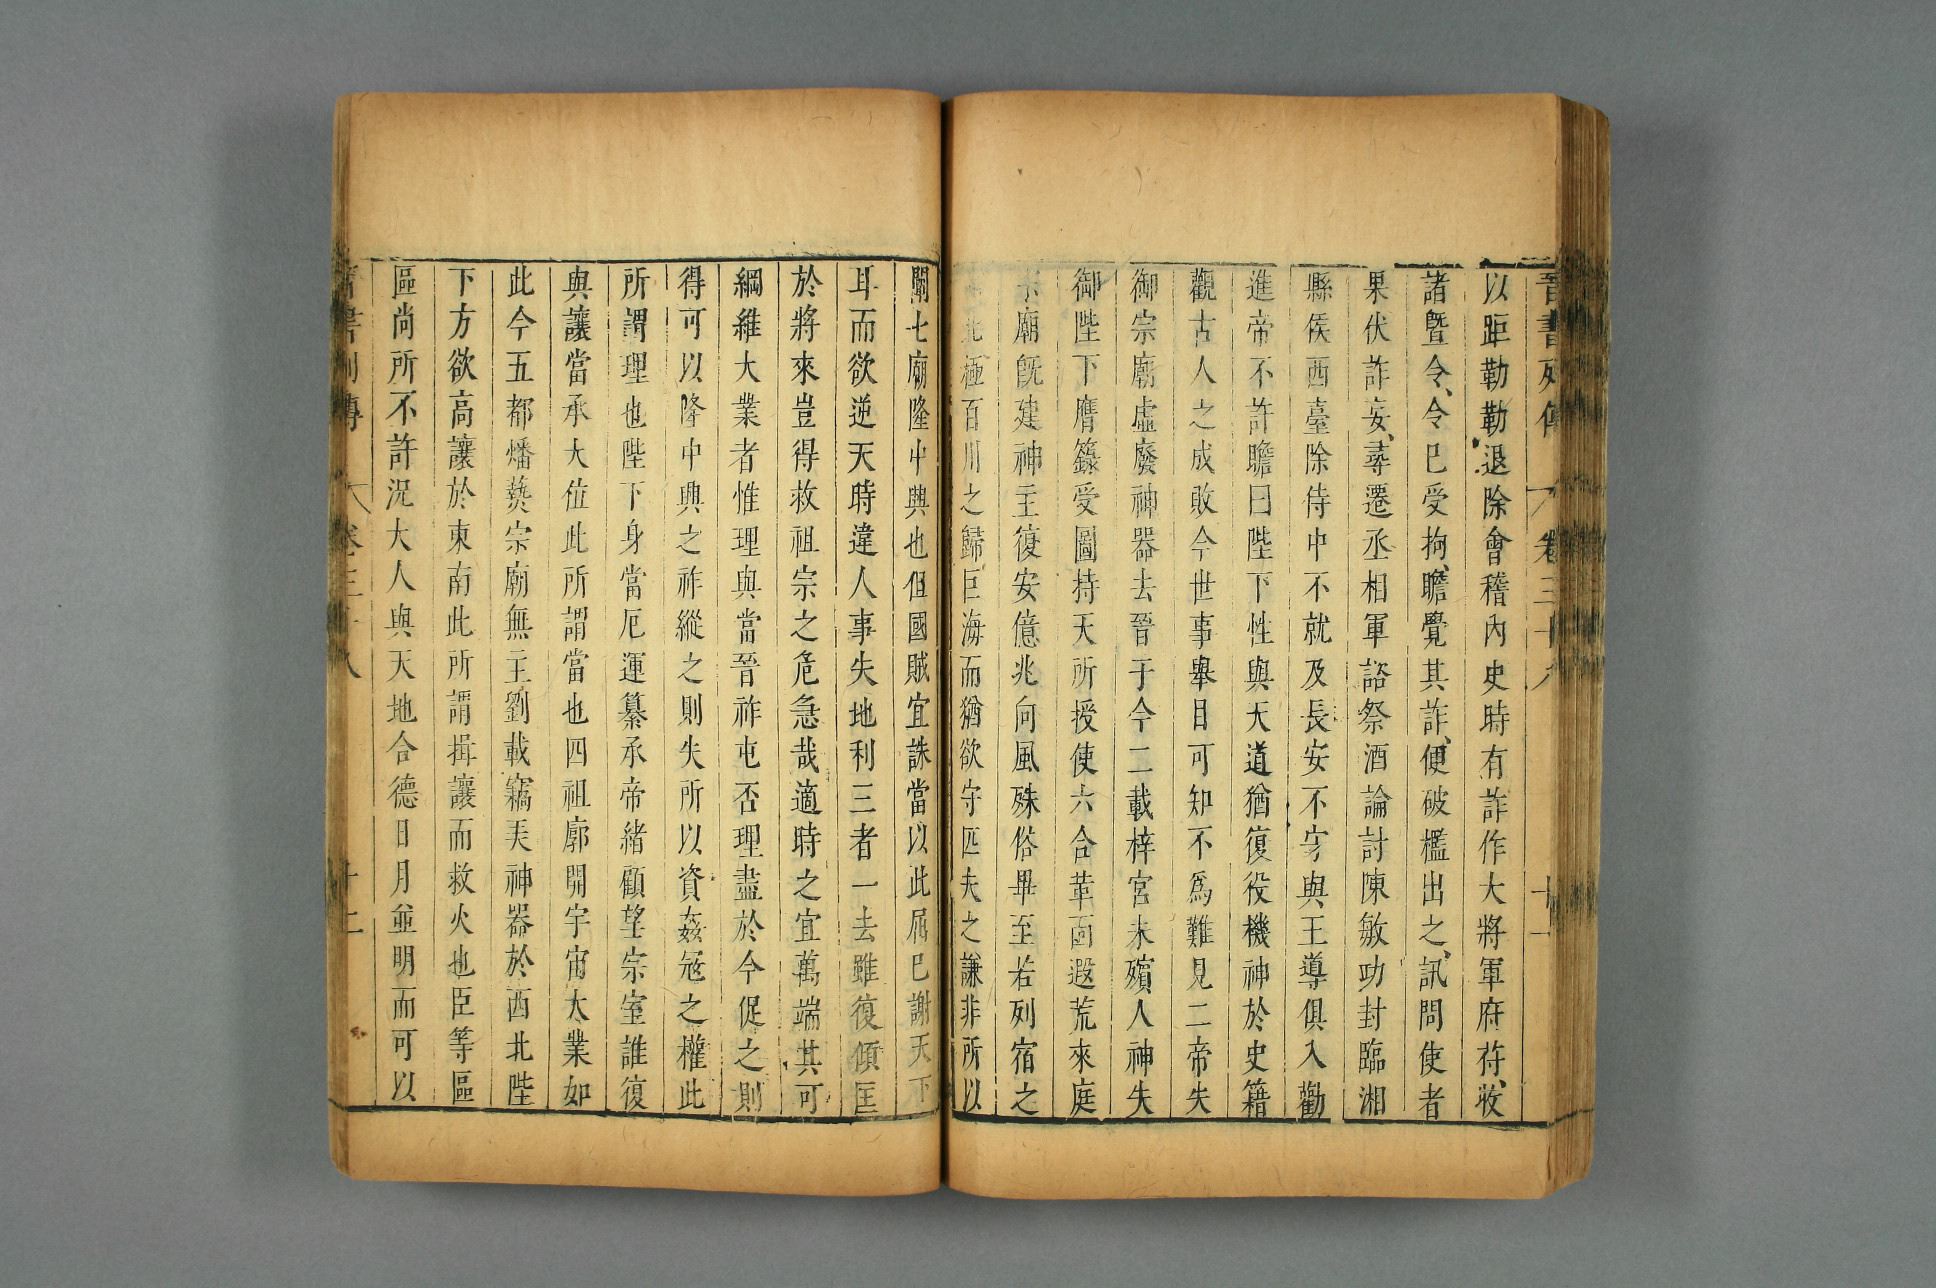 晉書列傳 卷三十八 十一
以距勒勒退除會稽內史時有詐作大將軍府符收
諸曁令令巳受拘瞻覺其詐便破檻出之訊問使者
果伏詐妄尋遷丞相軍諮祭酒論討陳敏功封臨湘
縣侯西臺除侍中不就及長安不守與王導俱入勸
進帝不許瞻曰陛下性與天道猶復役機神於史籍
觀古人之成敗今世事舉目可知不爲難見二帝失
御宗廟虛廢神器去晉于今二載梓宮未殯人神失
御陛下膺籙受圖持天所授使六合革面遐荒來庭
宗廟旣建神主復安億兆向風殊俗畢至若列宿之
北極百川之歸巨海而猶欲守匹夫之謙非所以
闡七廟隆中興也但國賊宜誅當以此屈巳謝天下
耳而欲逆天時違人事失地利三者一去雖復傾匡
於將來豈得救祖宗之危急哉適時之宜萬端其可
綱維大業者惟理與當晉祚屯否理盡於今促之則
得可以隆中興之祚縱之則失所以資姦寇之權此
所謂理也陛下身當厄運纂承帝緒顧望宗室誰復
與讓當承大位此所謂當也四祖廓開宇宙大業如
此今五都燔爇宗廟無主劉載竊弄神器於西北陛
下方欲高讓於東南此所謂揖讓而救火也臣等區
區尚所不許況大人與天地合德日月並明而可以
晉書列傳 卷三十八 十二